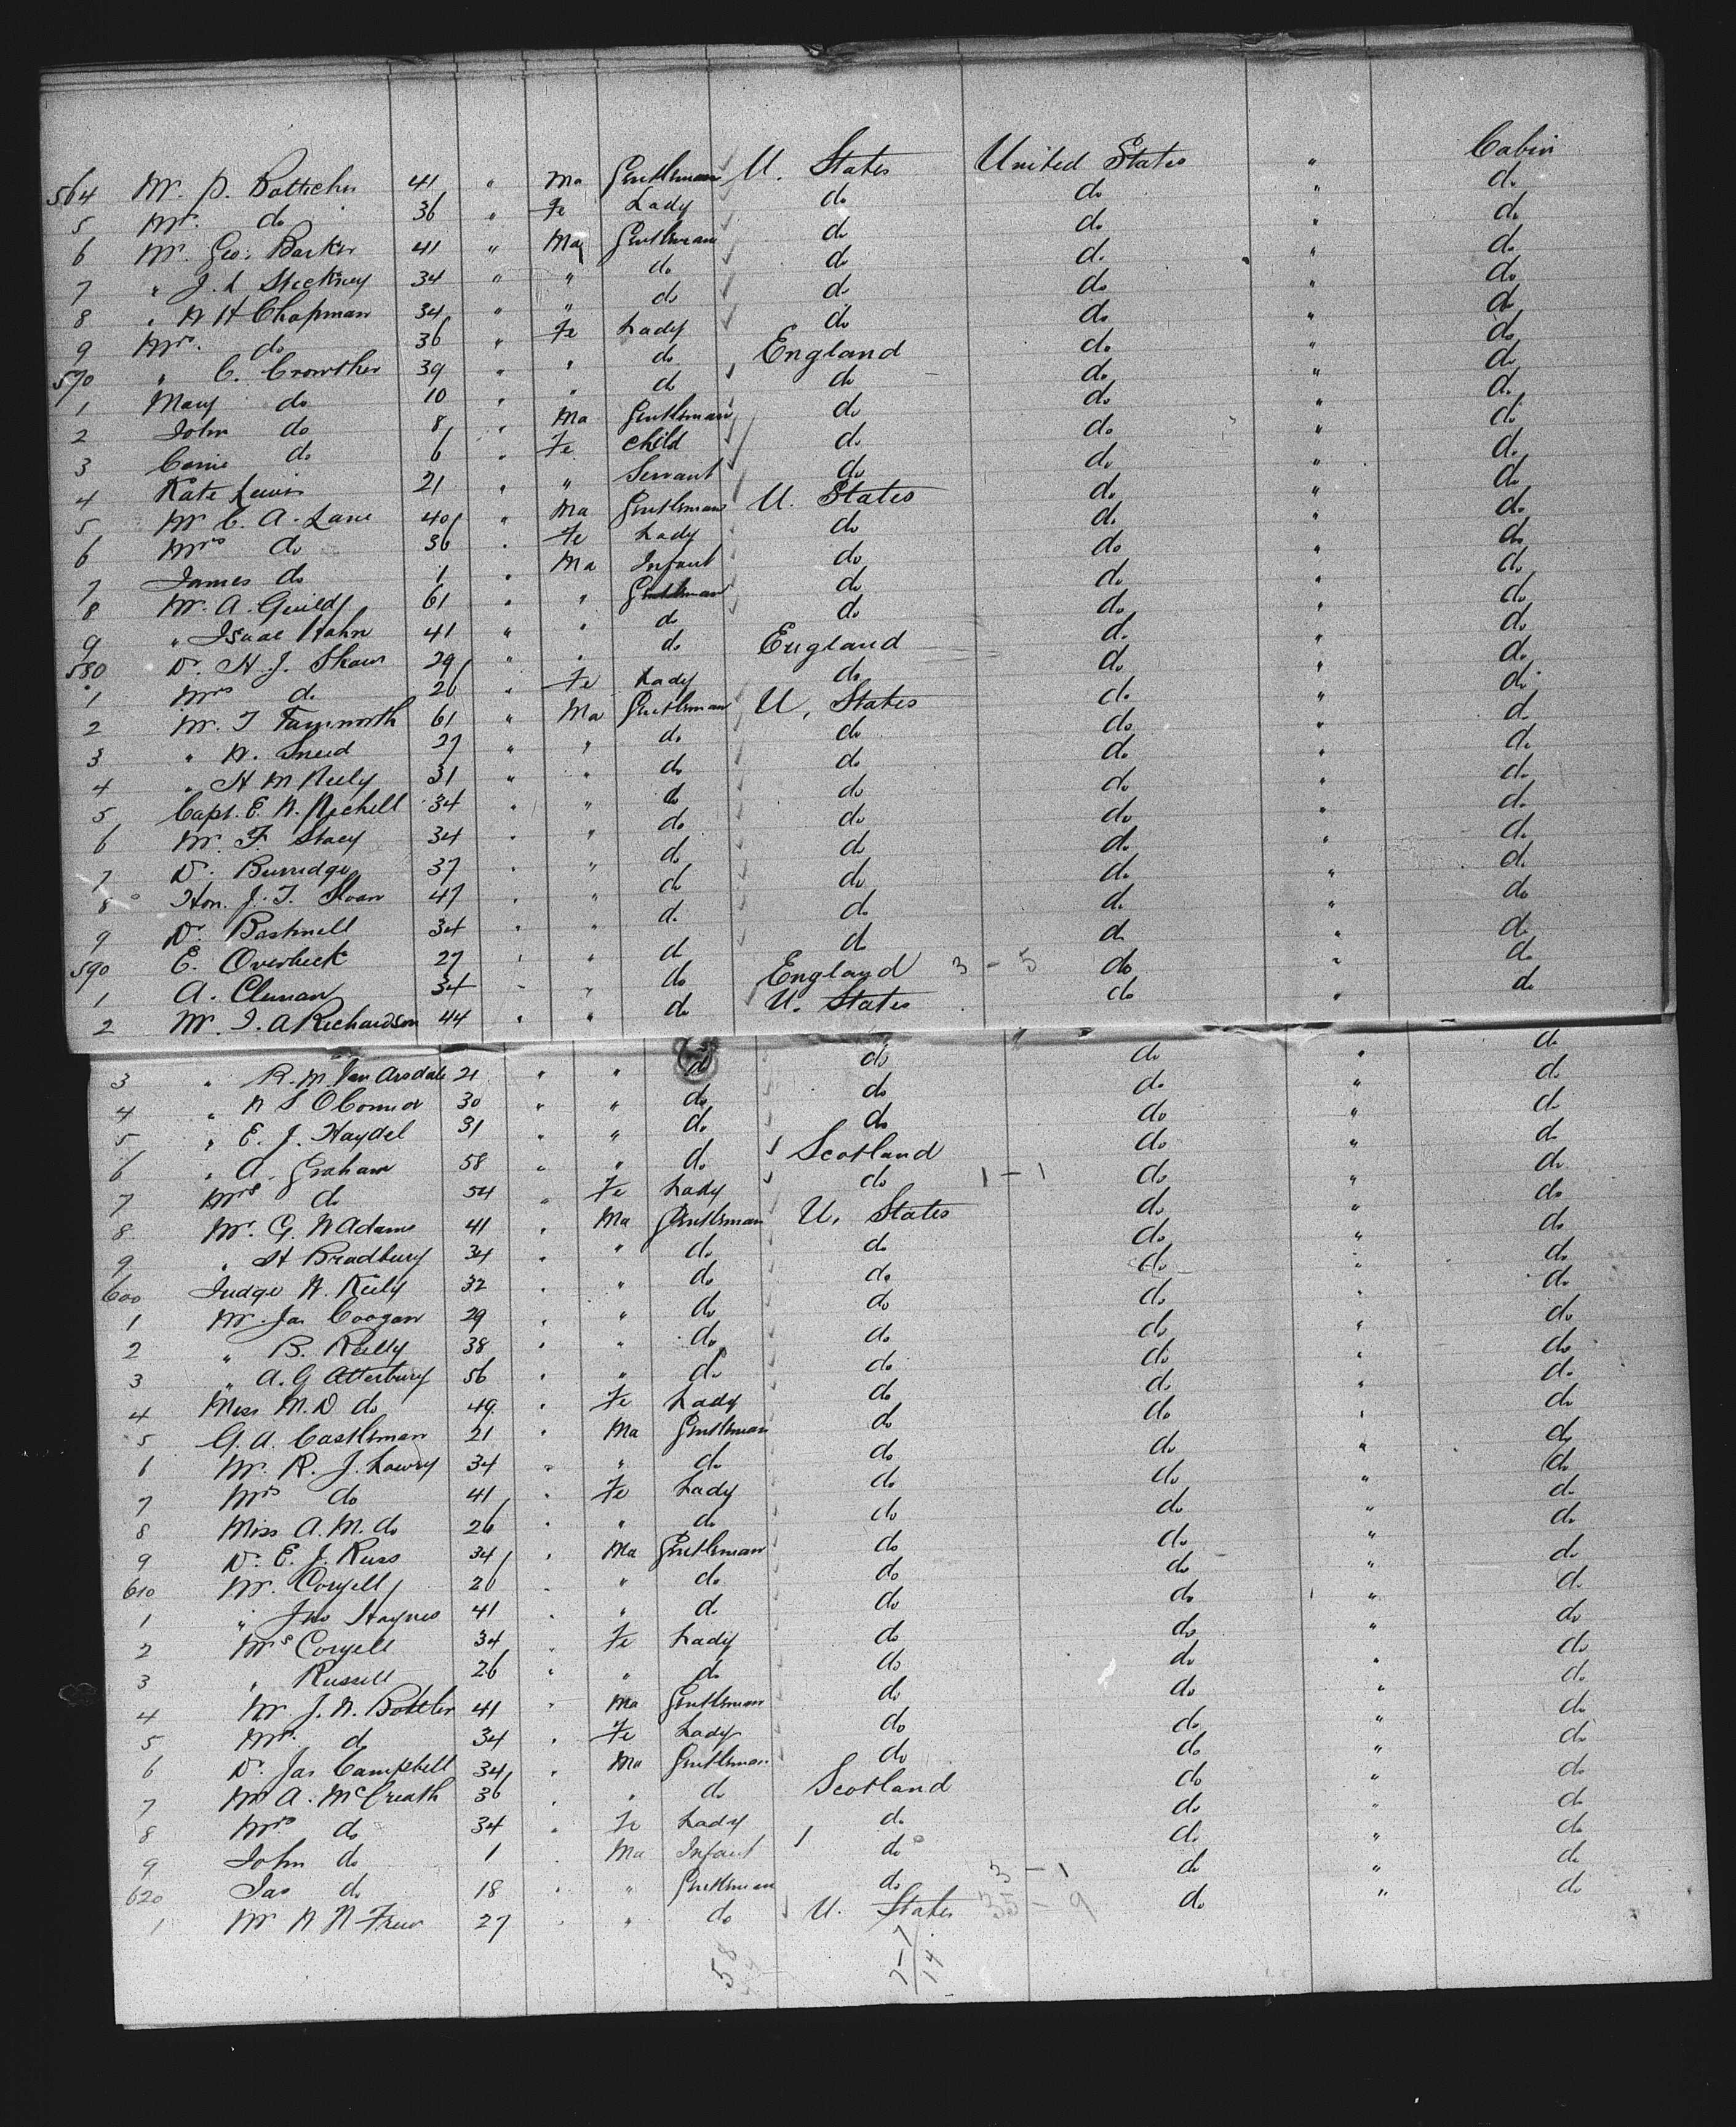 564 Mr. P. Botticher 41 " Ma Gentleman U. States United States " Cabin
5 Mrs. do 36 " Fe Lady do do " do
6 Mr. Geo: Barker 41 " Ma Gentleman do do " do
7 " J. L Stickney 34 " " do do do " do
8 " W H Chapman 34 " " do do do " do
9 Mrs. do 36 " Fe Lady do do " do
570 " C. Crowther 39 " " do England do " do
1 Mary do 10 " " do do do " do
2 John do 8 " Ma Gentleman do do " do
3 Carrie do 6 " Fe Child do do " do
4 Kate Lewis 21 " " Servant do do " do
5 Mr C. A. Lane 40 " Ma Gentleman U. States do " do
6 Mrs do 36 " Fe Lady do do " do
7 James do 1 " Ma Infant do do " do
8 Mr. A. Guild 61 " " Gentleman do do " do
9 " Isaac Hahn 41 " " do do do " do
580 Dr. H. J. Shaw 29 " " do England do " do
1 Mrs do 26 " Fe Lady do do " do
2 Mr. T Farnworth 61 " Ma Gentleman U. States do " do
3 " W. Sneed 27 " " do do do " do
4 " H M Neely 31 " " do do do " do
5 Capt. E. W. 34 " " do do do " do
6 Mr. F. Stacy 34 " " do do do " do
7 Dr. Burridge 37 " " do do do " do
8 Hon. J. T. Sloan 47 " " do do do " do
9 Dr. 34 " " do do do " do
590 E. Overbeck 27 " " do do do " do
1 A. Cluman 34 " " do England 3 - 5 do " do
2 Mr. J. A Richardson 44 " " do U. States do " do
3 " R. M. Van Arsdale 21 " " do do do " do
4 " W S OConnor 30 " " do do do " do
5 " E. J. Haydel 31 " " do do do " do
6 " A. Graham 58 " " do Scotland do " do
7 Mrs do 54 " Fe Lady do 1 - 1 do " do
8 Mr. G. W Adams 41 " Ma Gentleman U. States do " do
9 " H Bradbury 34 " " do do do " do
600 Judge W. Kiely 32 " " do do do " do
1 Mr. Jas Coogan 29 " " do do do " do
2 " B. Reilly 38 " " do do do " do
3 " A. G Atterbury 56 " " do do do " do
4 Miss M. D do 49 " Fe Lady do do " do
5 G. A. Castleman 21 " Ma Gentleman do do " do
6 Mr. R. J. Lowry 34 " " do do do " do
7 Mrs do 41 " Fe Lady do do " do
8 Miss A. M. do 26 " " do do do " do
9 Dr. E. J. Russ 34 " Ma Gentleman do do " do
610 Mr. Coryell 26 " " do do do " do
1 " Jno Haynes 41 " " do do do " do
2 Mrs Coryell 34 " Fe Lady do do " do
3 " Russell 26 " " do do do " do
4 Mr J. W. Bottler 41 " Ma Gentleman do do " do
5 Mrs. do 34 " Fe Lady do do " do
6 Dr. Jas Campbell 34 " Ma Gentleman do do " do
7 Mr A. McCreath 36 " " do Scotland do " do
8 Mrs do 34 " Fe Lady do do " do
9 John do 1 " Ma Infant do do " do
620 Jas do 18 " " Gentleman do 3 - 1 do " do
1 Mr W W Frew 27 " " do U. States 35 - 9 do " do
58